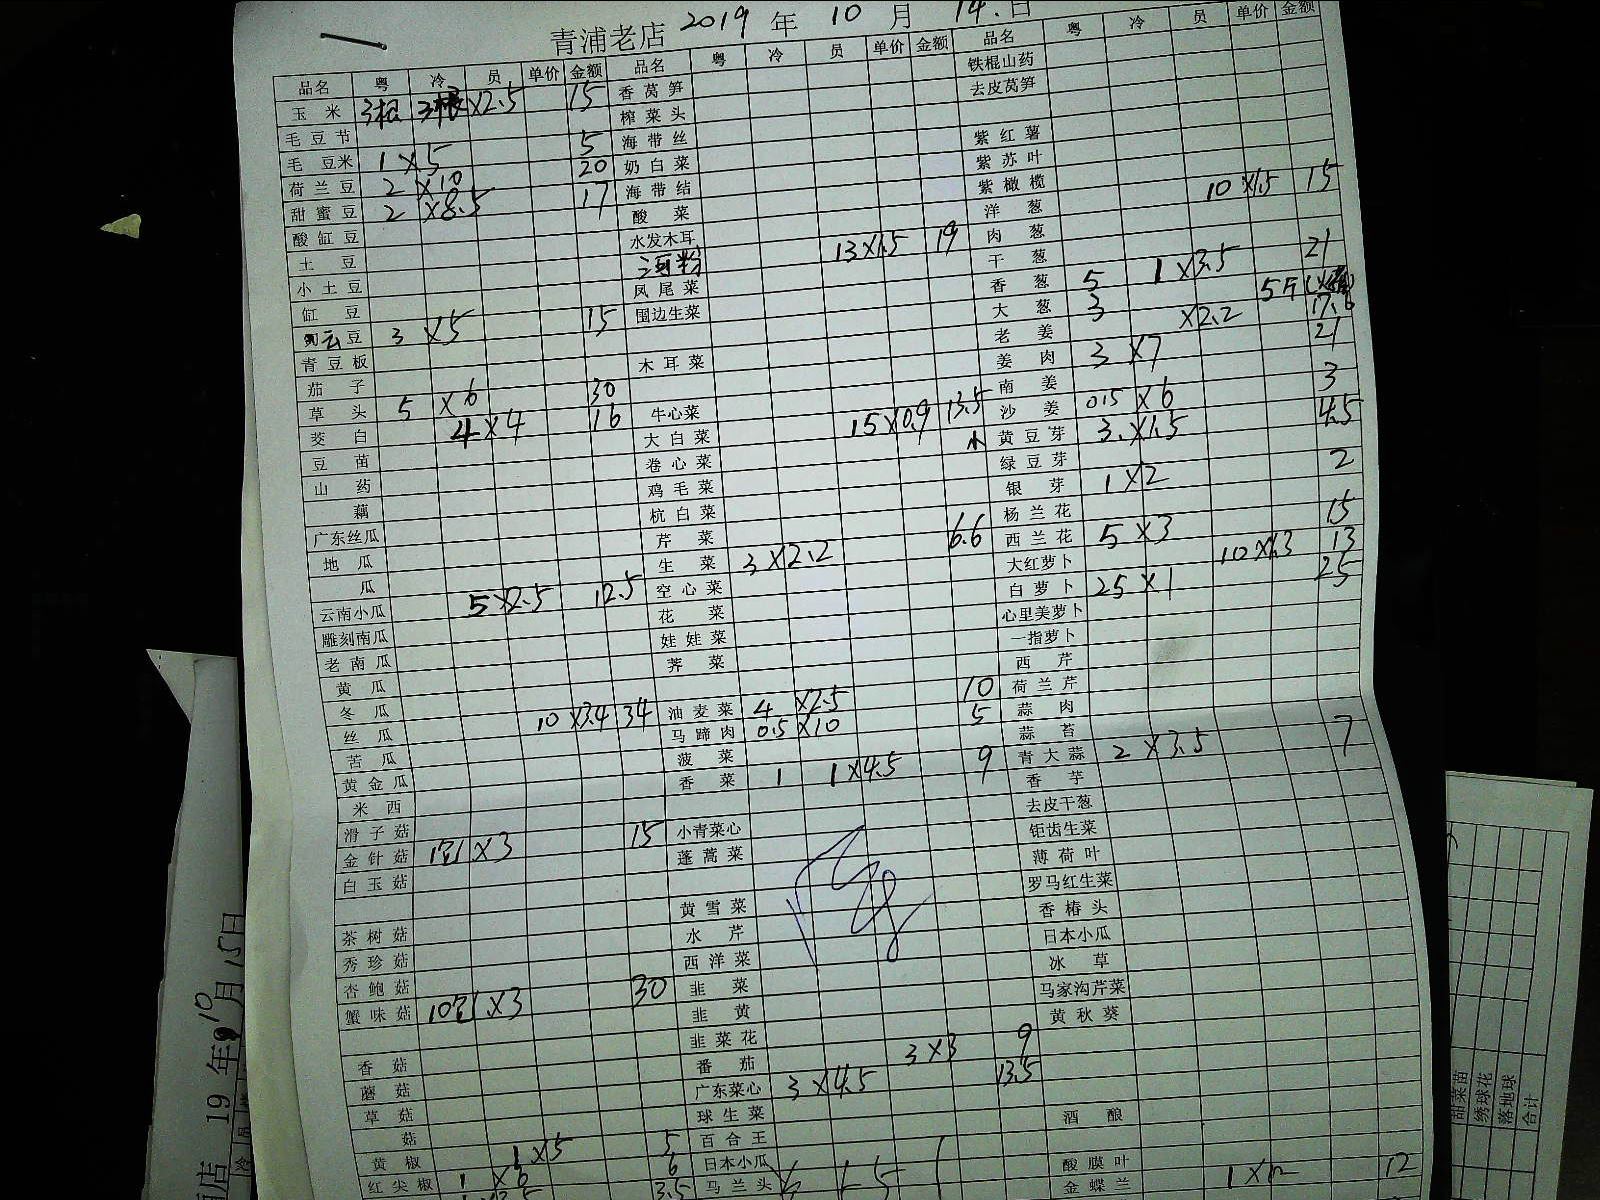 青浦老店 2019 年 10 月 14 日
品名 粤 冷 员 单价 金额 品名 粤 冷 员 单价 金额 品名 粤 冷 员 单价 金额
玉米 3根 3根 ×2.5 15 香莴笋 铁棍山药
毛豆节 榨菜头 去皮莴笋
毛豆米 1×5 5 海带丝
荷兰豆 2×10 20 奶白菜 紫红薯
甜蜜豆 2×8.5 17 海带结 紫苏叶
酸缸豆 酸菜 紫橄榄
土豆 水发木耳 洋葱 10×1.5 15
小土豆 河粉 13×1.5 19 肉葱
缸豆 凤尾菜 干葱
云豆 3×5 15 围边生菜 香葱 5 1×3.5 21
青豆板 大葱 3 5斤
茄子 木耳菜 老姜 ×2.2 17.6
草头 5×6 30 姜肉 3×7 21
茭白 4×4 16 牛心菜 南姜
豆苗 大白菜 15×0.9 13.5 沙姜 0.5×6 3
山药 卷心菜 黄豆芽 3×1.5 4.5
藕 鸡毛菜 绿豆芽
广东丝瓜 杭白菜 银芽 1×2 2
地瓜 芹菜 杨兰花
瓜 生菜 3×2.2 6.6 西兰花 5×3 15
云南小瓜 5×2.5 12.5 空心菜 大红萝卜 10×1.3 13
雕刻南瓜 花菜 白萝卜 25×1 25
老南瓜 娃娃菜 心里美萝卜
黄瓜 荠菜 一指萝卜
冬瓜 西芹
丝瓜 10×3.4 34 油麦菜 4×2.5 10 荷兰芹
苦瓜 马蹄肉 0.5×10 5 蒜肉
黄金瓜 菠菜 蒜苔
米西 香菜 1 1×4.5 9 青大蒜 2×3.5 7
滑子菇 香芋
金针菇 ×3 15 小青菜心 去皮干葱
白玉菇 蓬蒿菜 钜齿生菜
薄荷叶
茶树菇 黄雪菜 罗马红生菜
秀珍菇 水芹 香椿头
杏鲍菇 西洋菜 日本小瓜
蟹味菇 10包×3 30 韭菜 冰草
韭黄 马家沟芹菜
香菇 韭菜花 黄秋葵
蘑菇 番茄 3×3 9
草菇 广东菜心 3×4.5 13.5
菇 球生菜
黄椒 1×5 5 百合王 酒酿
红尖椒 1×6 6 日本小瓜
3.5 马兰头 酸膜叶
金蝶兰 1×12 12
19 年 10 月 15 日
甜菜苗
绣球花
落地球
合计